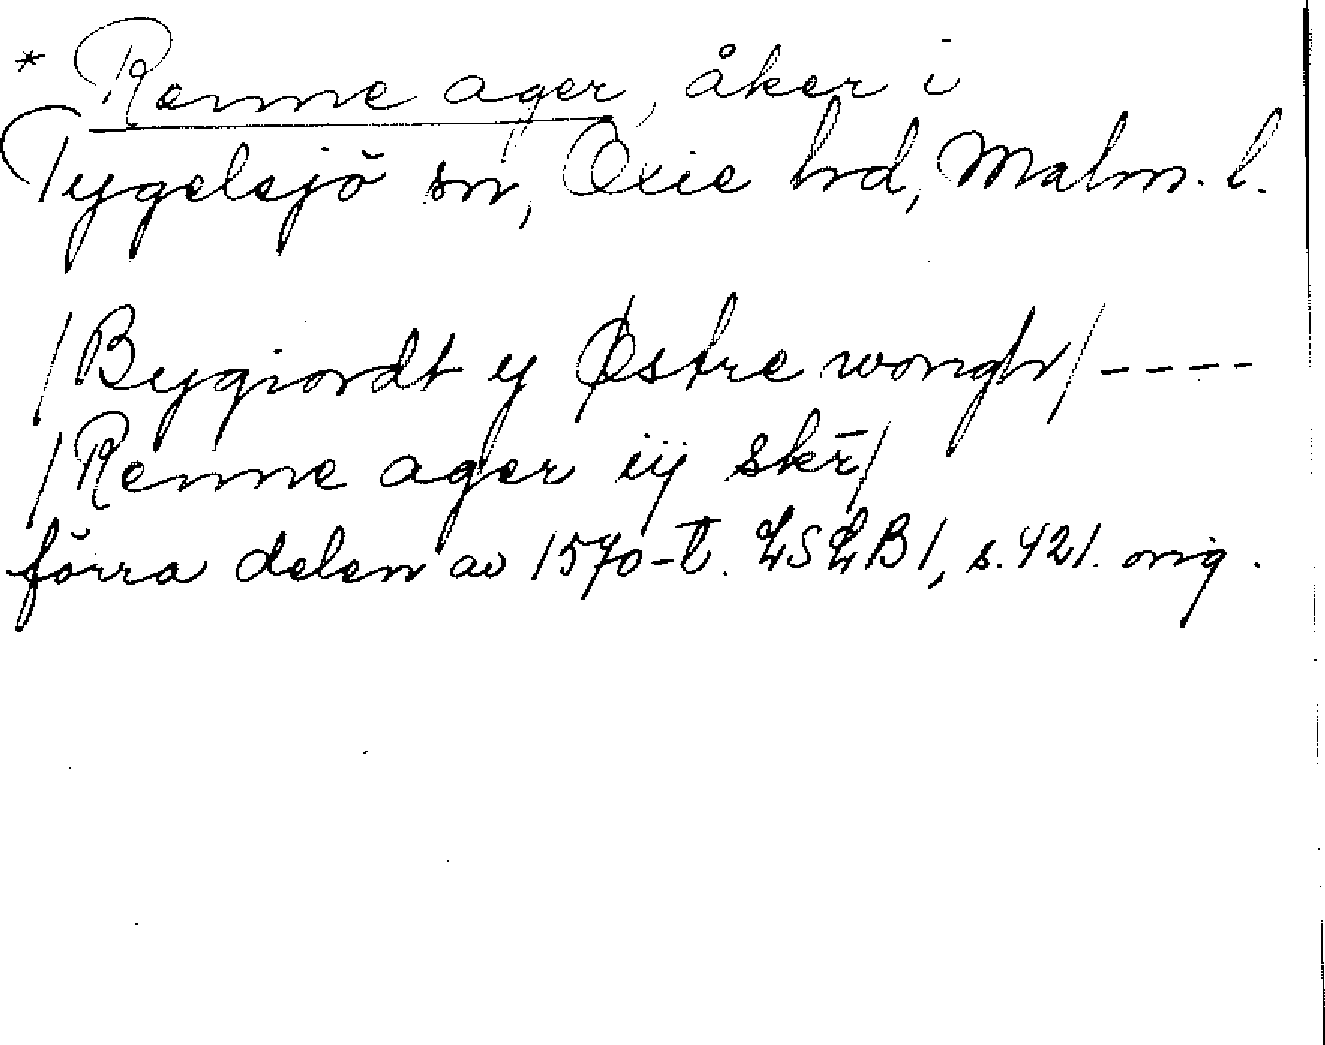 * Renne ager, åker i
Tygelsjö sn, Oxie hd, Malm. l.
/Bygiordt y Østre wongh/ ----
/Renne ager iij skr̄/
förra delen av 1570-t. LSLB1, s. 421. orig.